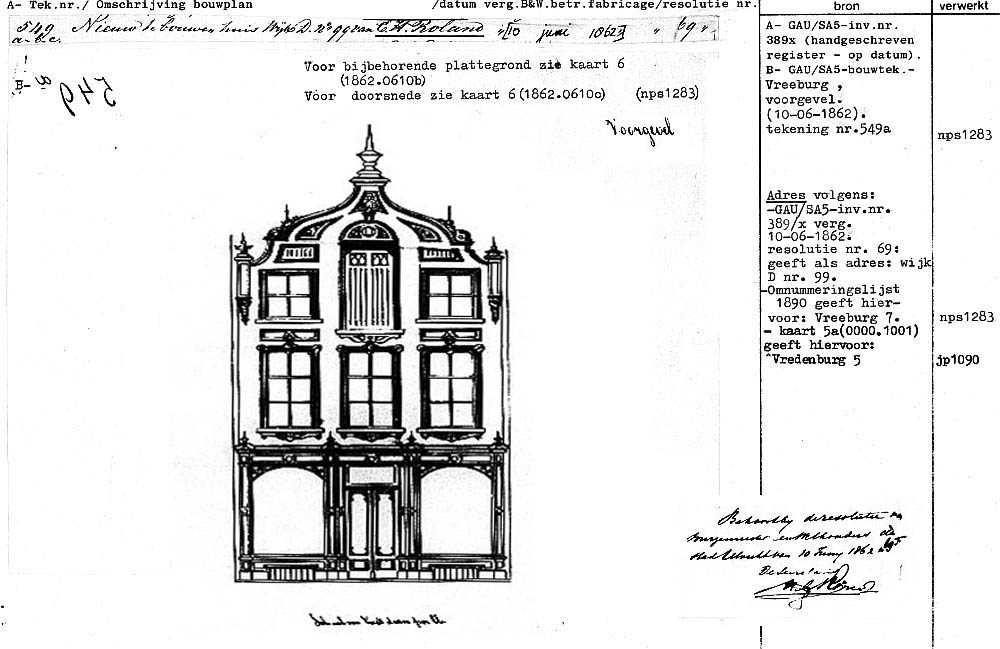 A- Tek.nr./ Omschrijving bouwplan /datum verg.B&W.betr.fabricage/resolutie nr.
bron
verwerkt
549 a.b.c. Nieuw te bouwen huis Wijk D. No 99 van C.H. Roland "10 juni 1862 " 69 "
B- 549 a
Voor bijbehorende plattegrond zie kaart 6
(1862.0610b)
Voor doorsnede zie kaart 6(1862.0610c) (nps1283)
Voorgevel
A- GAU/SA5-inv.nr.
389x (handgeschreven
register - op datum).
B- GAU/SA5-bouwtek.-
Vreeburg ,
voorgevel.
(10-06-1862).
tekening nr.549a
nps1283
Adres volgens:
-GAU/SA5-inv.nr.
389/x verg.
10-06-1862.
resolutie nr. 69:
geeft als adres: wijk
D nr. 99.
-Omnummeringslijst
1890 geeft hier-
voor: Vreeburg 7.
- kaart 5a(0000.1001)
geeft hiervoor:
^Vredenburg 5
nps1283
jp1090
Behoort bij de resolutie van
Burgemeester en Wethouders der
stad Utrecht van 10 Juny 1862 no 69
De Secretaris